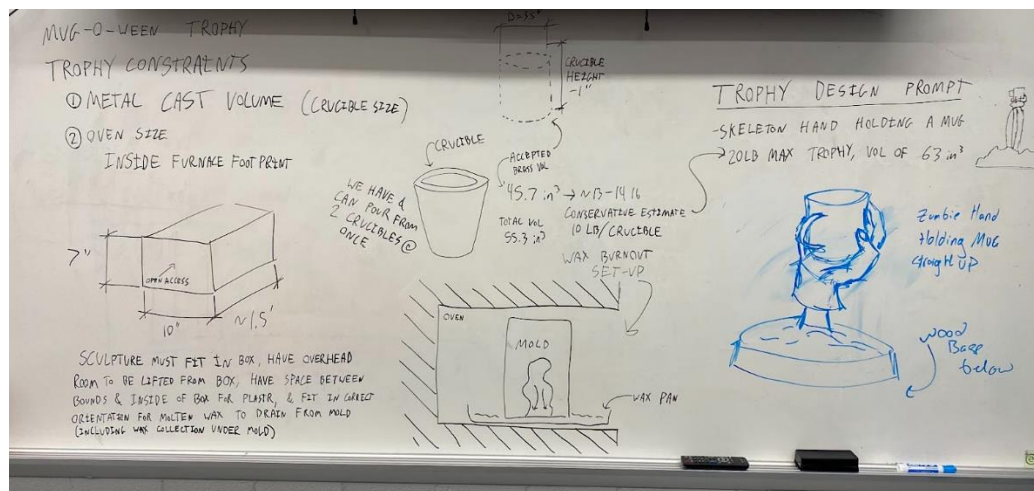 MUG-O-WEEN TROPHY
TROPHY CONSTRAINTS
① METAL CAST VOLUME (CRUCIBLE SIZE)
② OVEN SIZE
INSIDE FURNACE FOOTPRINT
7"
OPEN ACCESS
10"
~1.5'
SCULPTURE MUST FIT IN BOX, HAVE OVERHEAD
ROOM TO BE LIFTED FROM BOX, HAVE SPACE BETWEEN
BOUNDS & INSIDE OF BOX FOR PLASTR, & FIT IN CORRECT
ORIENTATION FOR MOLTEN WAX TO DRAIN FROM MOLD
(INCLUDING WAX COLLECTION UNDER MOLD)
CRUCIBLE
HEIGHT
-1"
CRUCIBLE
WE HAVE &
CAN POUR FROM
2 CRUCIBLES @
ONCE
ACCEPTED
BRASS VOL
45.7 in³ → ~13-14 lb
TOTAL VOL
55.3 in³
CONSERVATIVE ESTIMATE
10 LB/CRUCIBLE
WAX BURNOUT
SET-UP
OVEN
MOLD
WAX PAN
TROPHY DESIGN PROMPT
-SKELETON HAND HOLDING A MUG
20LB MAX TROPHY, VOL OF 63 in³
Zombie Hand
Holding MUG
Straight UP
Wood
Base
below